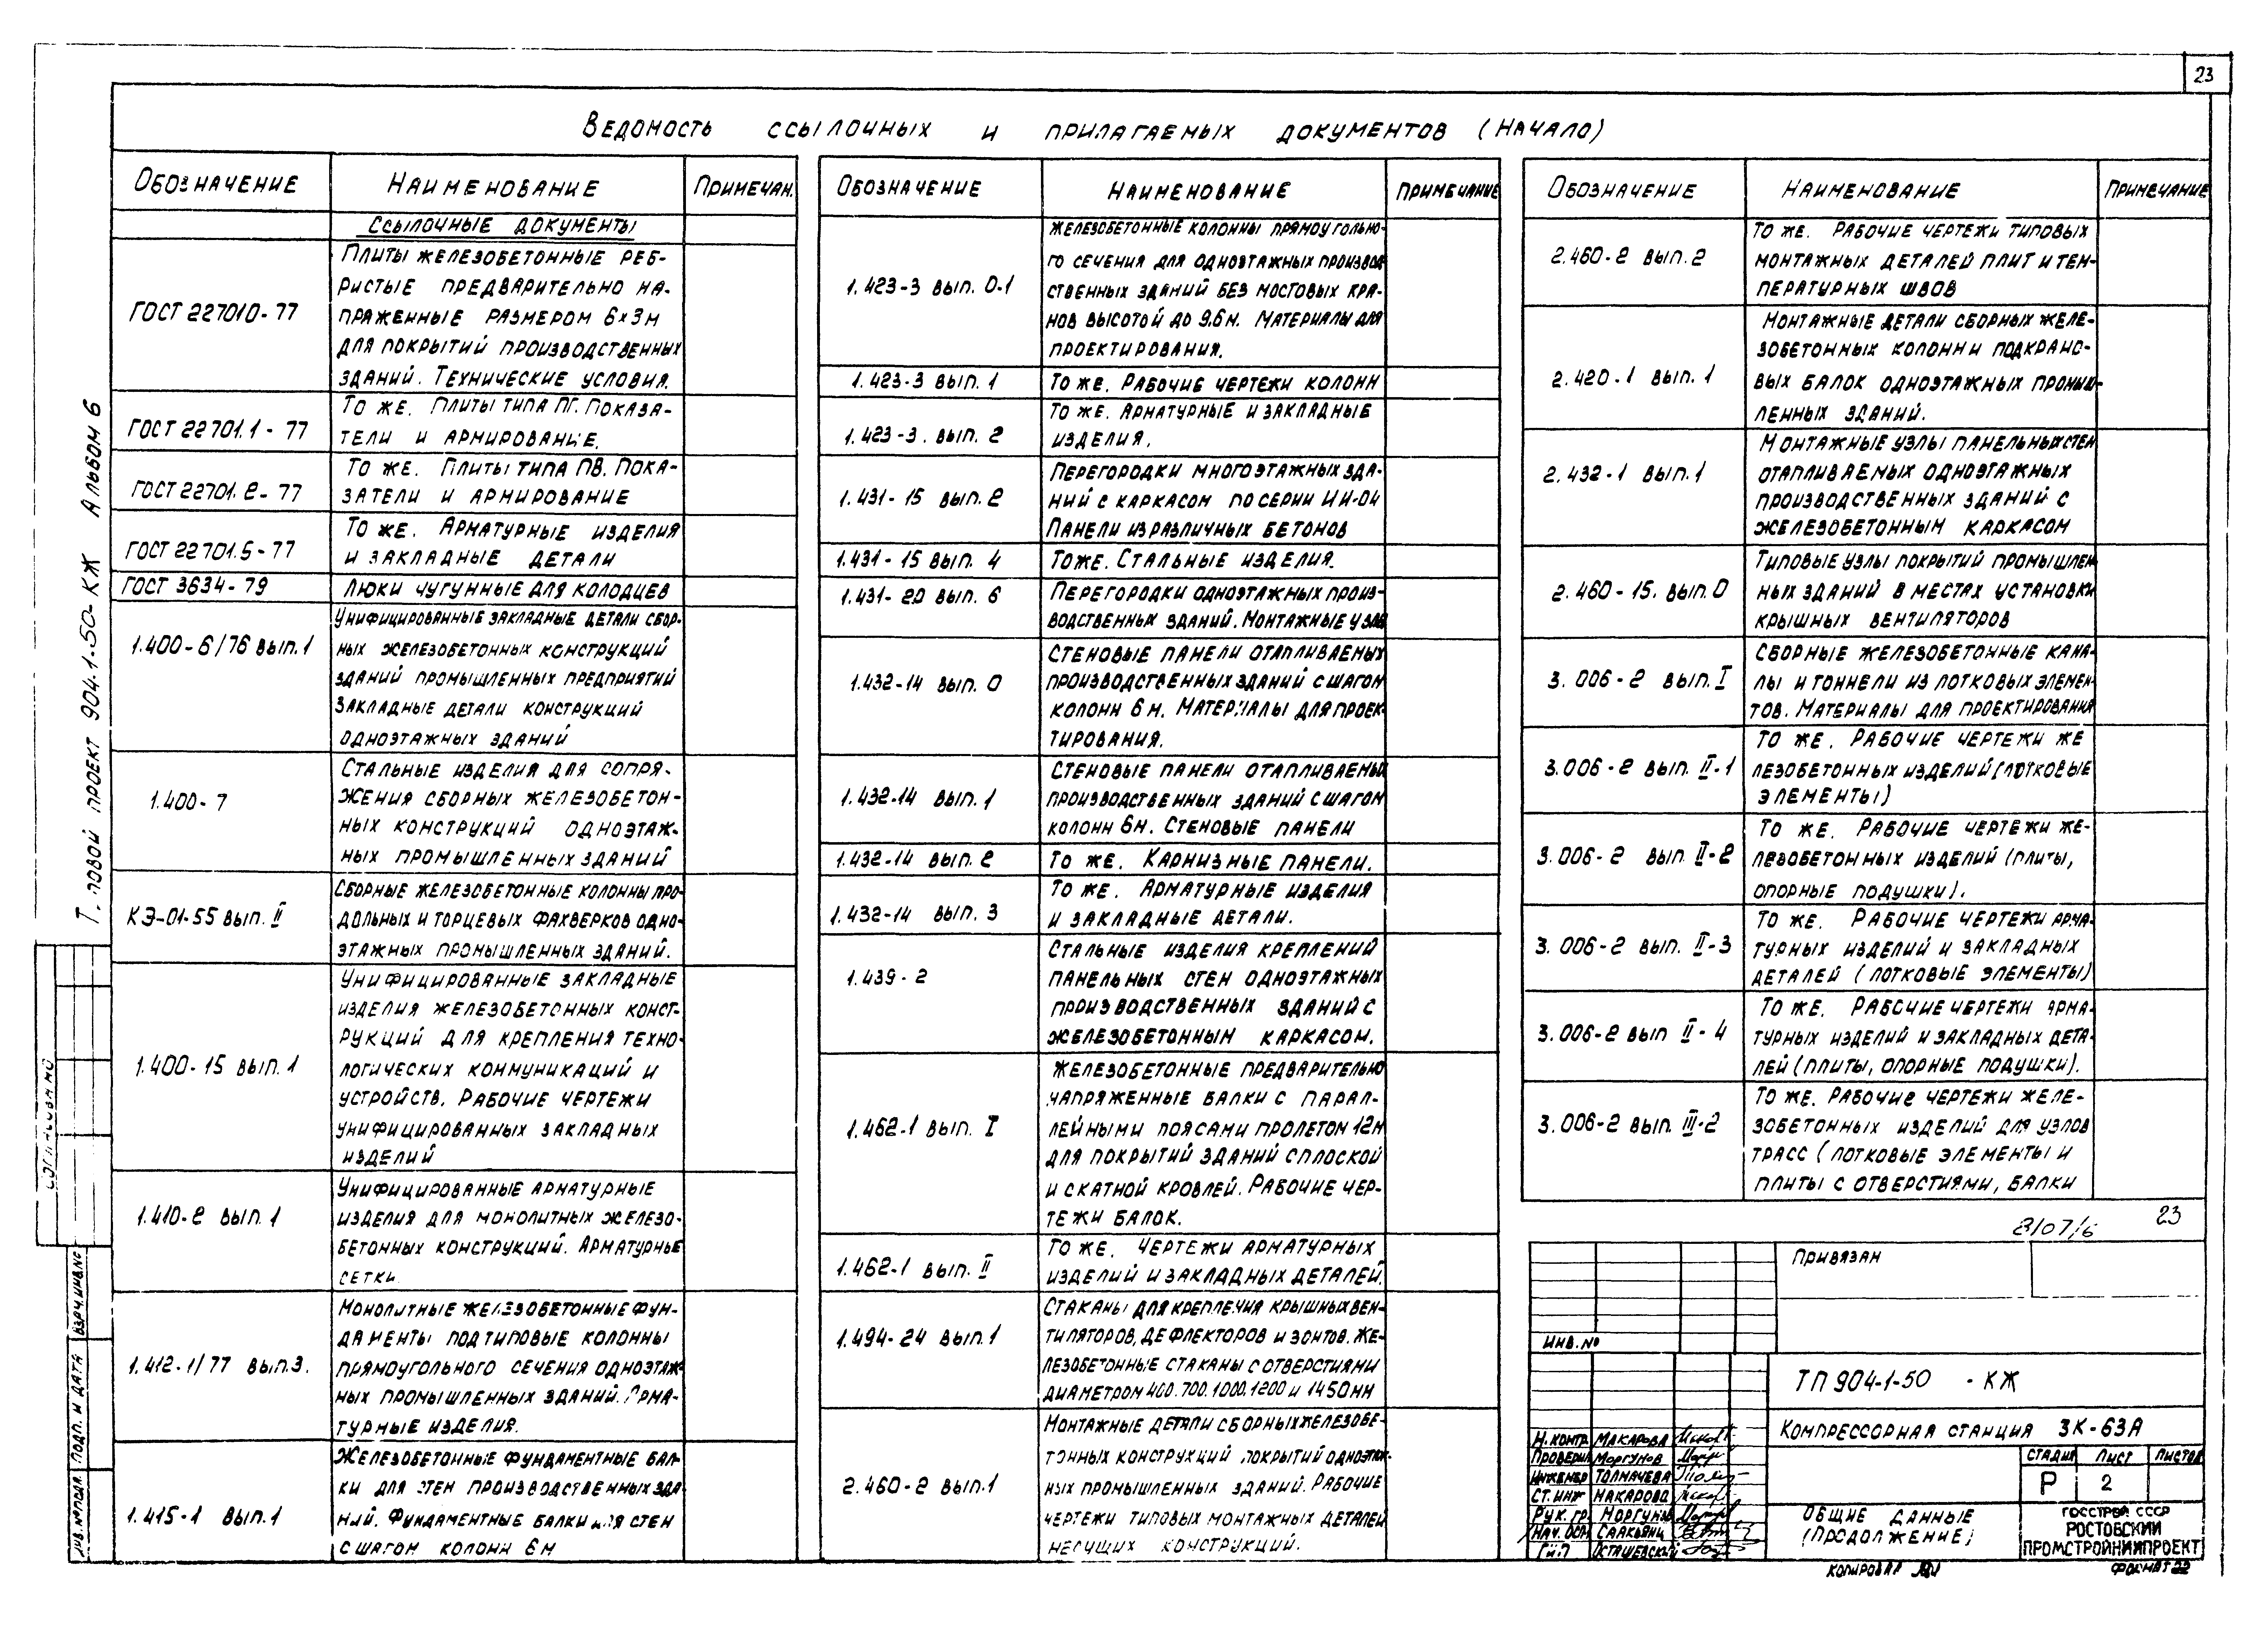 23
Ведомость ссылочных и прилагаемых документов (начало)
Обозначение Наименование Примечан.
Ссылочные документы
ГОСТ 227010-77
Плиты железобетонные реб-
ристые предварительно на-
пряженные размером 6×3м
для покрытий производственных
зданий. Технические условия.
ГОСТ 22701.1-77
То же. Плиты типа ПГ. Показа-
тели и армирование.
ГОСТ 22701.2-77
То же. Плиты типа ПВ. Пока-
затели и армирование
ГОСТ 22701.5-77
То же. Арматурные изделия
и закладные детали
ГОСТ 3634-79 Люки чугунные для колодцев
1.400-6/76 вып.1
Унифицированные закладные детали сбор-
ных железобетонных конструкций
зданий промышленных предприятий
Закладные детали конструкций
одноэтажных зданий
1.400-7
Стальные изделия для сопря-
жения сборных железобетон-
ных конструкций одноэтаж-
ных промышленных зданий
КЭ-01-55 вып. II
Сборные железобетонные колонны про-
дольных и торцевых фахверков одно-
этажных промышленных зданий.
1.400-15 вып.1
Унифицированные закладные
изделия железобетонных конст-
рукций для крепления техно-
логических коммуникаций и
устройств. Рабочие чертежи
унифицированных закладных
изделий
1.410-2 вып.1
Унифицированные арматурные
изделия для монолитных железо-
бетонных конструкций. Арматурные
сетки
1.412-1/77 вып.3.
Монолитные железобетонные фун-
даменты под типовые колонны
прямоугольного сечения одноэтаж-
ных промышленных зданий. Арма-
турные изделия.
1.415-1 вып.1
Железобетонные фундаментные бал-
ки для стен производственных зда-
ний. Фундаментные балки для стен
с шагом колонн 6м
Обозначение Наименование Примечание
1.423-3 вып. 0-1
Железобетонные колонны прямоугольно-
го сечения для одноэтажных производ-
ственных зданий без мостовых кра-
нов высотой до 9.6м. Материалы для
проектирования.
1.423-3 вып. 1 То же. Рабочие чертежи колонн
1.423-3. вып. 2
То же. Арматурные и закладные
изделия.
1.431-15 вып. 2
Перегородки многоэтажных зда-
ний с каркасом по серии ИИ-04
Панели из различных бетонов
1.431-15 вып. 4 То же. Стальные изделия.
1.431-20 вып. 6
Перегородки одноэтажных произ-
водственных зданий. Монтажные узлы
1.432-14 вып. 0
Стеновые панели отапливаемых
производственных зданий с шагом
колонн 6м. Материалы для проек-
тирования.
1.432-14 вып. 1
Стеновые панели отапливаемых
производственных зданий с шагом
колонн 6м. Стеновые панели
1.432-14 вып. 2 То же. Карнизные панели.
1.432-14 вып. 3
То же. Арматурные изделия
и закладные детали.
1.439-2
Стальные изделия креплений
панельных стен одноэтажных
производственных зданий с
железобетонным каркасом.
1.462-1 вып. I
Железобетонные предварительно
напряженные балки с парал-
лейными поясами пролетом 12м
для покрытий зданий с плоской
и скатной кровлей. Рабочие чер-
тежи балок.
1.462-1 вып. II
То же. Чертежи арматурных
изделий и закладных деталей.
1.494-24 вып.1
Стаканы для крепления крышных вен-
тиляторов, дефлекторов и зонтов. Же-
лезобетонные стаканы с отверстиями
диаметром 400.700.1000.1200 и 1450мм
2.460-2 вып.1
Монтажные детали сборных железобе-
тонных конструкций покрытий одноэтаж-
ных промышленных зданий. Рабочие
чертежи типовых монтажных деталей
несущих конструкций.
Обозначение Наименование Примечание
2.460-2 вып.2
То же. Рабочие чертежи типовых
монтажных деталей плит и тем-
пературных швов
2.420-1 вып.1
Монтажные детали сборных желе-
зобетонных колонн и подкрано-
вых балок одноэтажных промыш-
ленных зданий.
2.432-1 вып.1
Монтажные узлы панельных стен
отапливаемых одноэтажных
производственных зданий с
железобетонным каркасом
2.460-15. вып.0
Типовые узлы покрытий промышлен
ных зданий в местах установки
крышных вентиляторов
3.006-2 вып. I
Сборные железобетонные кана-
лы и тоннели из лотковых элемен-
тов. Материалы для проектирования
3.006-2 вып. II-1
То же. Рабочие чертежи же
лезобетонных изделий (лотковые
элементы)
3.006-2 вып II-2
То же. Рабочие чертежи же-
лезобетонных изделий (плиты,
опорные подушки).
3.006-2 вып. II-3
То же. Рабочие чертежи арма-
турных изделий и закладных
деталей (лотковые элементы)
3.006-2 вып II-4
То же. Рабочие чертежи арма-
турных изделий и закладных дета-
лей (плиты, опорные подушки).
3.006-2 вып. III-2
То же. Рабочие чертежи желе-
зобетонных изделий для узлов
трасс (лотковые элементы и
плиты с отверстиями, балки
8107/6 23
Привязан
Инв.№
ТП 904-1-50 -КЖ
Компрессорная станция 3К-63А
Н.контр. Макарова
Проверил Моргунов
Инженер Толмачева
Ст.инж Макарова
Рук.гр. Моргунов
Нач.осн Саакьянц
ГИП Осташевский
Стадия Лист Листов
Р 2
Общие данные
(Продолжение)
Госстрой СССР
Ростовский
Промстройниипроект
Копировал
Формат 22
Т.повой проект 904-1-50-КЖ Альбом 6
Согласовано
Взам.инв.№
Подп. и дата
Инв.№подл.